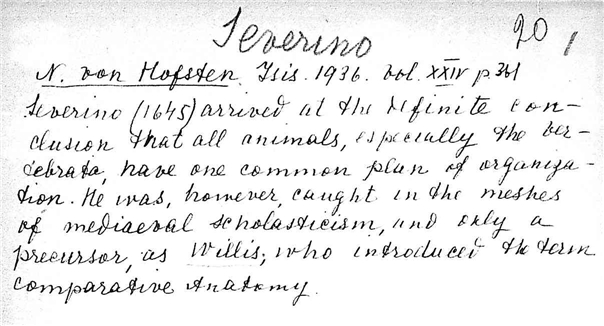 Severino 20 /
N. von Hofsten Isis. 1936. vol. XXIV p 361
Severino (1645) arrived at the definite con-
clusion that all animals, especially the ver-
tebrata, have one common plan of organiza-
tion. He was, however, caught in the meshes
of mediaeval scholasticism, and only a
precursor, as Willis, who introduced the term
comparative Anatomy.